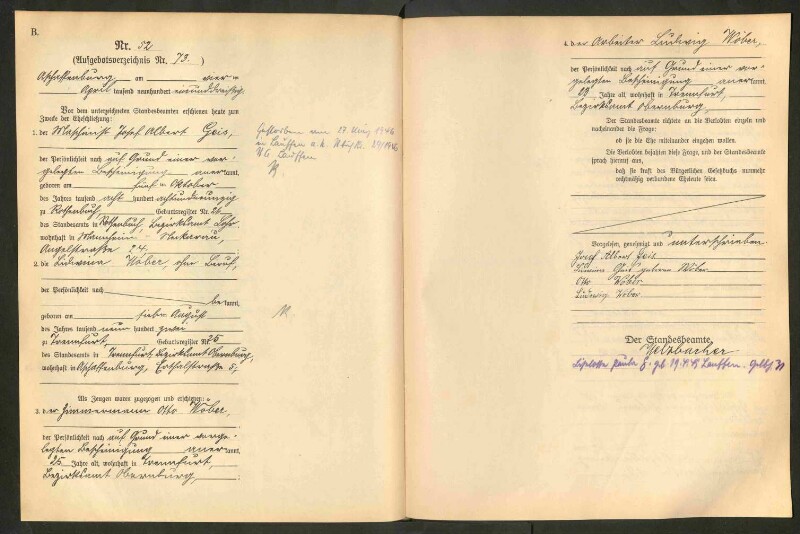 B.
Nr. 52
(Aufgebotsverzeichnis Nr. 73.)
Aschaffenburg, am vier-
April tausend neunhundert einunddreißig
Vor dem unterzeichneten Standesbeamten erschienen heute zum
Zwecke der Eheschließung:
1. der Maschinist Josef Albert Geis,
der Persönlichkeit nach auf Grund einer vor-
gelegten Bescheinigung anerkannt,
geboren am fünf- Oktober
des Jahres tausend acht hundert achtundneunzig
zu Rothenbuch, Geburtsregister Nr. 24
des Standesamts in Rothenbuch, Bezirksamt Lohr,
wohnhaft in Mannheim-Neckarau,
Angelstrasse 24.
2. die Ludwina Wöber, ohne Beruf,
der Persönlichkeit nach
bekannt,
geboren am sieben August
des Jahres tausend neun hundert zwei
zu Trennfurt, Geburtsregister Nr. 25
des Standesamts in Trennfurt, Bezirksamt Obernburg,
wohnhaft in Aschaffenburg, Erthalstraße 5,
Als Zeugen waren zugezogen und erschienen:
3. der Zimmermann Otto Wöber,
der Persönlichkeit nach auf Grund einer vorge-
legten Bescheinigung anerkannt,
25 Jahre alt, wohnhaft in Trennfurt,
Bezirksamt Obernburg,
Gestorben am 27. 1946
in Lauffen a.N.
Lauffen
4. der Arbeiter Ludwig Wöber,
der Persönlichkeit nach auf Grund einer vor-
gelegten Bescheinigung anerkannt,
29 Jahre alt, wohnhaft in Trennfurt,
Bezirksamt Obernburg,
Der Standesbeamte richtete an die Verlobten einzeln und
nacheinander die Frage:
ob sie die Ehe miteinander eingehen wollen.
Die Verlobten bejahten diese Frage, und der Standesbeamte
sprach hierauf aus,
daß sie kraft des Bürgerlichen Gesetzbuchs nunmehr
rechtmäßig verbundene Eheleute seien.
Vorgelesen, genehmigt und unterschrieben
Josef Albert Geis
Geis geboren Wöber
Otto Wöber
Ludwig Wöber
Der Standesbeamte,
Liselotte Paula Lauffen